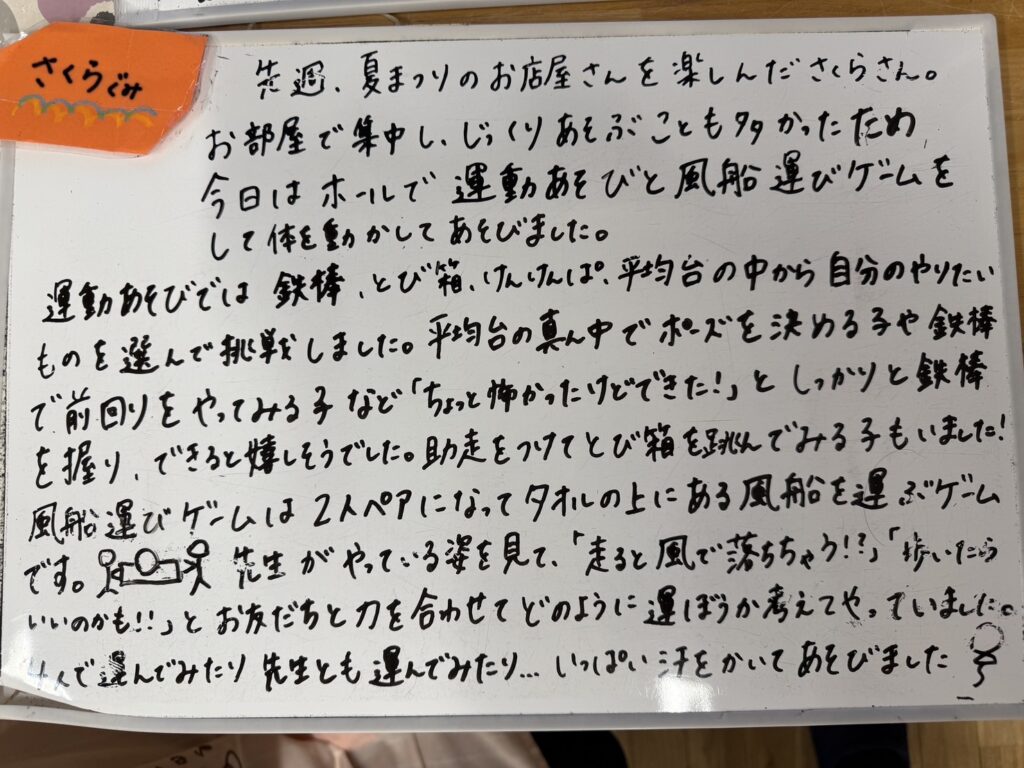 さくらぐみ
先週、夏まつりのお店屋さんを楽しんださくらさん。
お部屋で集中し、じっくりあそぶことも多かったため
今日はホールで運動あそびと風船運びゲームを
して体を動かしてあそびました。
運動あそびでは鉄棒、とび箱、けんけんぱ、平均台の中から自分のやりたい
ものを選んで挑戦しました。平均台の真ん中でポーズを決める子や鉄棒
で前回りをやってみる子など「ちょっと怖かったけどできた!」としっかりと鉄棒
を握り、できると嬉しそうでした。助走をつけてとび箱を跳んでみる子もいました!
風船運びゲームは2人ペアになってタオルの上にある風船を運ぶゲーム
です。先生がやっている姿を見て、「走ると風で落ちちゃう!?」「歩いたら
いいのかも!!」とお友だちと力を合わせてどのように運ぼうか考えてやっていました。
4人で運んでみたり先生とも運んでみたり…いっぱい汗をかいてあそびました